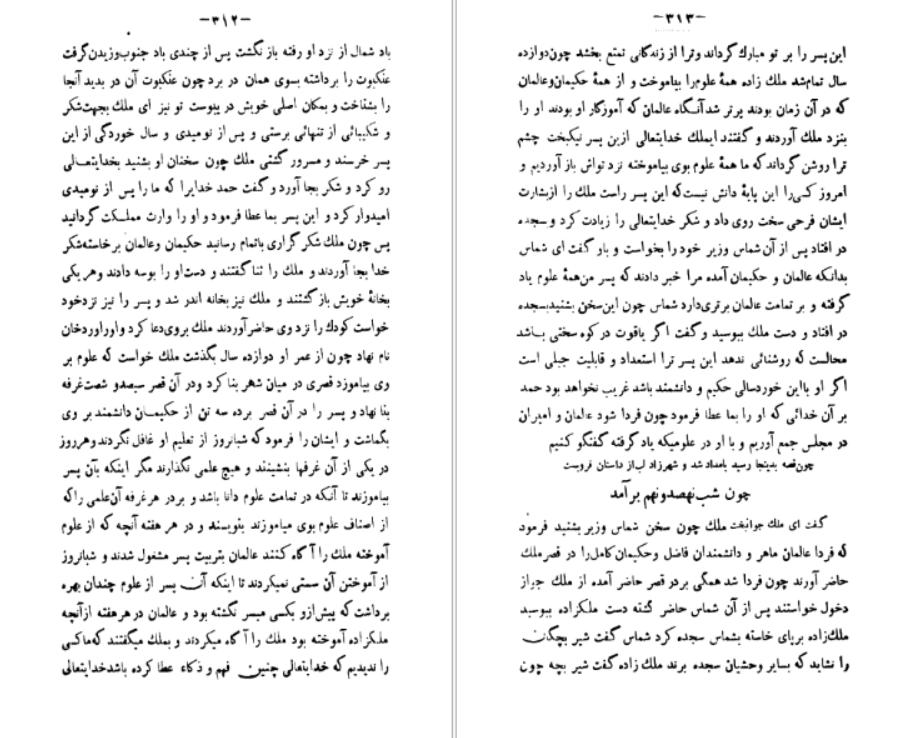 -۳۱۲-
باد شمال از نزد او رفته باز نگشت پس از چندی باد جنوب‌وزیدن‌گرفت
عنکبوت را برداشته بسوی همان در برد چون عنکبوت آن در بدید آنجا
را بشناخت و بمکان اصلی خویش در پیوست تو نیز ای ملك بجهت‌شکر
و شکیبائی از تنهائی برستی و پس از نومیدی و سال خوردگی از این
پسر خرسند و مسرور گشتی ملك چون سخنان او بشنید بخدایتعالی
رو کرد و شکر بجا آورد و گفت حمد خدایرا که ما را پس از نومیدی
امیدوار کرد و این پسر بما عطا فرمود و او را وارث مملکت گردانید
پس چون ملك شکر گزاری باتمام رسانید حکیمان وعالمان برخاسته‌شکر
خدا بجا آوردند و ملك را ثنا گفتند و دست‌او را بوسه دادند وهر یکی
بخانهٔ خویش باز گشتند و ملك نیز بخانه اندر شد و پسر را نیز نزدخود
خواست کودك را نزد وی حاضر آوردند ملك بروی‌دعا کرد و اوراوردخان
نام نهاد چون از عمر او دوازده سال بگذشت ملك خواست که علوم بر
وی بیاموزد قصری در میان شهر بنا کرد ودر آن قصر سیصدو شصت‌غرفه
بنا نهاد و پسر را در آن قصر برده سه تن از حکیمان دانشمند بر وی
بگماشت و ایشان را فرمود که شبانروز از تعلیم او غافل نگردند وهرروز
در یکی از آن غرفها بنشینند و هیچ علمی نگذارند مگر اینکه بآن پسر
بیاموزند تا آنکه در تمامت علوم دانا باشد و بردر هرغرفه آن‌علمی راکه
از اصناف علوم بوی میاموزند بنویسند و در هر هفته آنچه که از علوم
آموخته ملك را آگاه کنند عالمان بتربیت پسر مشغول شدند و شبانروز
از آموختن آن سستی نمیکردند تا اینکه آن پسر از علوم چندان بهره
برداشت که پیش‌ازو بکسی میسر نگشته بود و عالمان در هرهفته ازآنچه
ملکزاده آموخته بود ملك را آگاه میکردند و بملك میگفتند که‌ماکسی
را ندیدیم که خدایتعالی چنین فهم و ذکاء عطا کرده باشدخدایتعالی
-۳۱۳-
این پسر را بر تو مبارك گرداند وترا از زندگانی تمتع بخشد چون‌دوازده
سال تمام‌شد ملك زاده همهٔ علوم‌را بیاموخت و از همهٔ حکیمان‌وعالمان
که در آن زمان بودند برتر شد آنگاه عالمان که آموزگار او بودند او را
بنزد ملك آوردند و گفتند ایملك خدایتعالی ازین پسر نیکبخت چشم
ترا روشن گرداند که ما همهٔ علوم بوی بیاموخته نزد تواش باز آوردیم و
امروز کسی‌را این پایهٔ دانش نیست‌که این پسر راست ملك را ازبشارت
ایشان فرحی سخت روی داد و شکر خدایتعالی را زیادت کرد و سجده
در افتاد پس از آن شماس وزیر خود را بخواست و باو گفت ای شماس
بدانکه عالمان و حکیمان آمده مرا خبر دادند که پسر من‌همهٔ علوم یاد
گرفته و بر تمامت عالمان برتری‌دارد شماس چون این‌سخن بشنیدبسجده
در افتاد و دست ملك ببوسید و گفت اگر یاقوت در کوه سختی باشد
محالست که روشنائی ندهد این پسر ترا استعداد و قابلیت جبلی است
اگر او بااین خوردسالی حکیم و دانشمند باشد غریب نخواهد بود حمد
بر آن خدائی که او را بما عطا فرمود چون فردا شود عالمان و امیران
در مجلس جمع آوریم و با او در علومیکه یاد گرفته گفتگو کنیم
چون‌قصه بدینجا رسید بامداد شد و شهرزاد لب‌از داستان فروبست
چون شب‌نهصدونهم بر آمد
گفت ای ملك جوانبخت ملك چون سخن شماس وزیر بشنید فرمود
که فردا عالمان ماهر و دانشمندان فاضل وحکیمان‌کامل‌را در قصرملك
حاضر آورند چون فردا شد همگی بردر قصر حاضر آمده از ملك جواز
دخول خواستند پس از آن شماس حاضر گشته دست ملکزاده ببوسید
ملك‌زاده برپای خاسته بشماس سجده کرد شماس گفت شیر بچگان
را نشاید که بسایر وحشیان سجده برند ملك زاده گفت شیر بچه چون